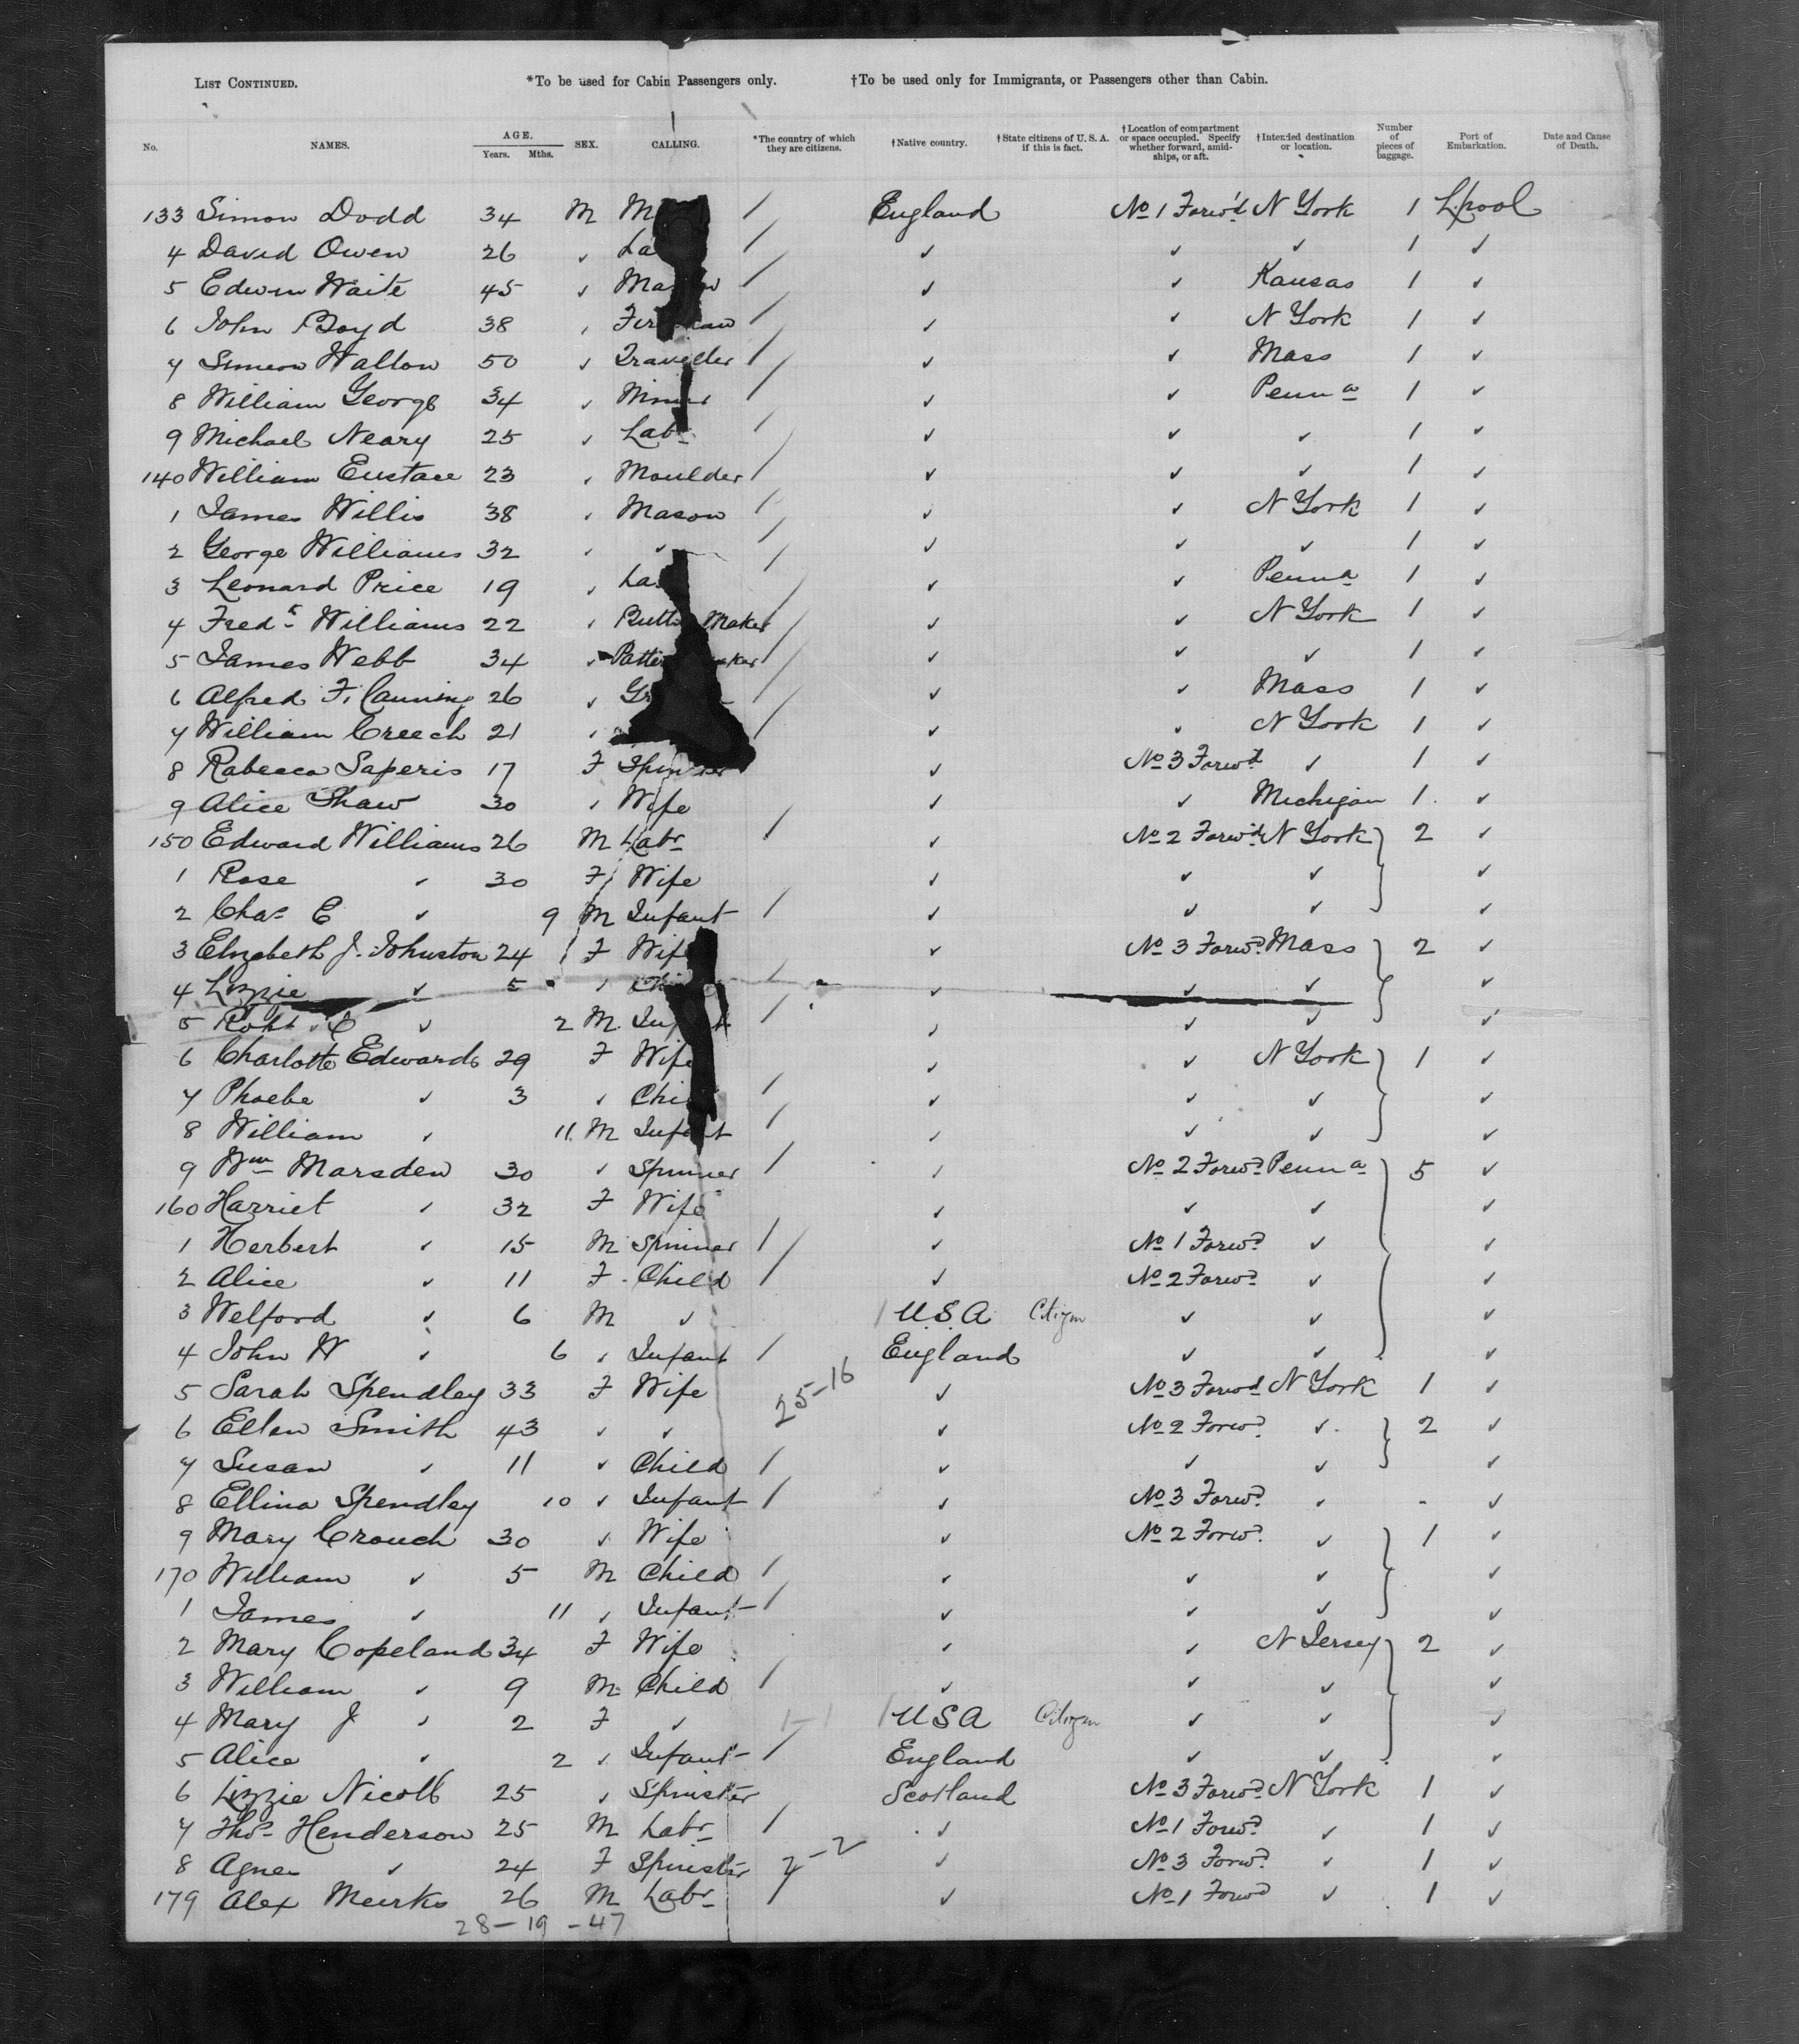 LIST CONTINUED. *To be used for Cabin Passengers only. †To be used only for Immigrants, or Passengers other than Cabin.
No. NAMES. AGE. Years. Mths. SEX. CALLING. *The country of which they are citizens. †Native country. †State citizens of U. S. A. if this is fact. †Location of compartment or space occupied. Specify whether forward, amidships, or aft. †Intended destination or location. Number of pieces of baggage. Port of Embarkation. Date and Cause of Death.
133 Simon Dodd 34 M / England No 1 Forwd N York 1 Lpool
4 David Owen 26 ✓ / ✓ ✓ ✓ 1 ✓
5 Edwin Waite 45 ✓ / ✓ ✓ Kansas 1 ✓
6 John Boyd 38 ✓ / ✓ ✓ N York 1 ✓
7 Simeon Walton 50 ✓ Traveller / ✓ ✓ Mass 1 ✓
8 William George 34 ✓ Miner / ✓ ✓ Penna 1 ✓
9 Michael Neary 25 ✓ Labr / ✓ ✓ ✓ 1 ✓
140 William Eustace 23 ✓ Moulder / ✓ ✓ ✓ 1 ✓
1 James Willis 38 ✓ Mason / ✓ ✓ N York 1 ✓
2 George Williams 32 ✓ ✓ / ✓ ✓ ✓ 1 ✓
3 Leonard Price 19 ✓ / ✓ ✓ Penna 1 ✓
4 Fredk Williams 22 ✓ Maker / ✓ ✓ N York 1 ✓
5 James Webb 34 ✓ / ✓ ✓ ✓ 1 ✓
6 Alfred F. Canning 26 ✓ / ✓ ✓ Mass 1 ✓
7 William Creech 21 ✓ / ✓ ✓ N York 1 ✓
8 Rabecca Saperis 17 F Spinster ✓ No 3 Forwd ✓ 1 ✓
9 Alice Shaw 30 ✓ Wife ✓ ✓ Michigan 1 ✓
150 Edward Williams 26 M Labr / ✓ No 2 Forwd N York 2 ✓
1 Rose ✓ 30 F Wife ✓ ✓ ✓ ✓
2 Chas E ✓ 9 M Infant / ✓ ✓ ✓ ✓
3 Elizabeth J. Johnston 24 F Wife ✓ No 3 Forwd Mass 2 ✓
4 Lizzie ✓ 5 ✓ Child / ✓ ✓ ✓ ✓
5 Robt C ✓ 2 M Infant / ✓ ✓ ✓ ✓
6 Charlotte Edwards 29 F Wife ✓ ✓ N York 1 ✓
7 Phoebe ✓ 3 ✓ Child / ✓ ✓ ✓ ✓
8 William ✓ 11 M Infant / ✓ ✓ ✓ ✓
9 Wm Marsden 30 ✓ Spinner / ✓ No 2 Forwd Penna 5 ✓
160 Harriet ✓ 32 F Wife ✓ ✓ ✓ ✓
1 Herbert ✓ 15 M Spinner / ✓ No 1 Forwd ✓ ✓
2 Alice ✓ 11 F Child / ✓ No 2 Forwd ✓ ✓
3 Welford ✓ 6 M ✓ / U.S.A Citizen ✓ ✓ ✓
4 John W ✓ 6 ✓ Infant / England ✓ ✓ ✓
5 Sarah Spendley 33 F Wife 25-16 ✓ No 3 Forwd N York 1 ✓
6 Ellen Smith 43 ✓ ✓ ✓ No 2 Forwd ✓ 2 ✓
7 Susan ✓ 11 ✓ Child / ✓ ✓ ✓ ✓
8 Ellina Spendley 10 ✓ Infant / ✓ No 3 Forwd ✓ - ✓
9 Mary Crouch 30 ✓ Wife ✓ No 2 Forwd ✓ 1 ✓
170 William ✓ 5 M Child / ✓ ✓ ✓ ✓
1 James ✓ 11 ✓ Infant / ✓ ✓ ✓ ✓
2 Mary Copeland 34 F Wife ✓ ✓ N Jersey 2 ✓
3 William ✓ 9 M Child / ✓ ✓ ✓ ✓
4 Mary J ✓ 2 F ✓ 1-1 / U S A Citizen ✓ ✓ ✓
5 Alice ✓ 2 ✓ Infant / England ✓ ✓ ✓
6 Lizzie Nicoll 25 ✓ Spinster Scotland No 3 Forwd N York 1 ✓
7 Thos Henderson 25 M Labr / ✓ No 1 Forwd ✓ 1 ✓
8 Agnes ✓ 24 F Spinster 2-2 ✓ No 3 Forwd ✓ 1 ✓
179 Alex Meirks 26 M Labr / ✓ No 1 Forwd ✓ 1 ✓
28-19-47